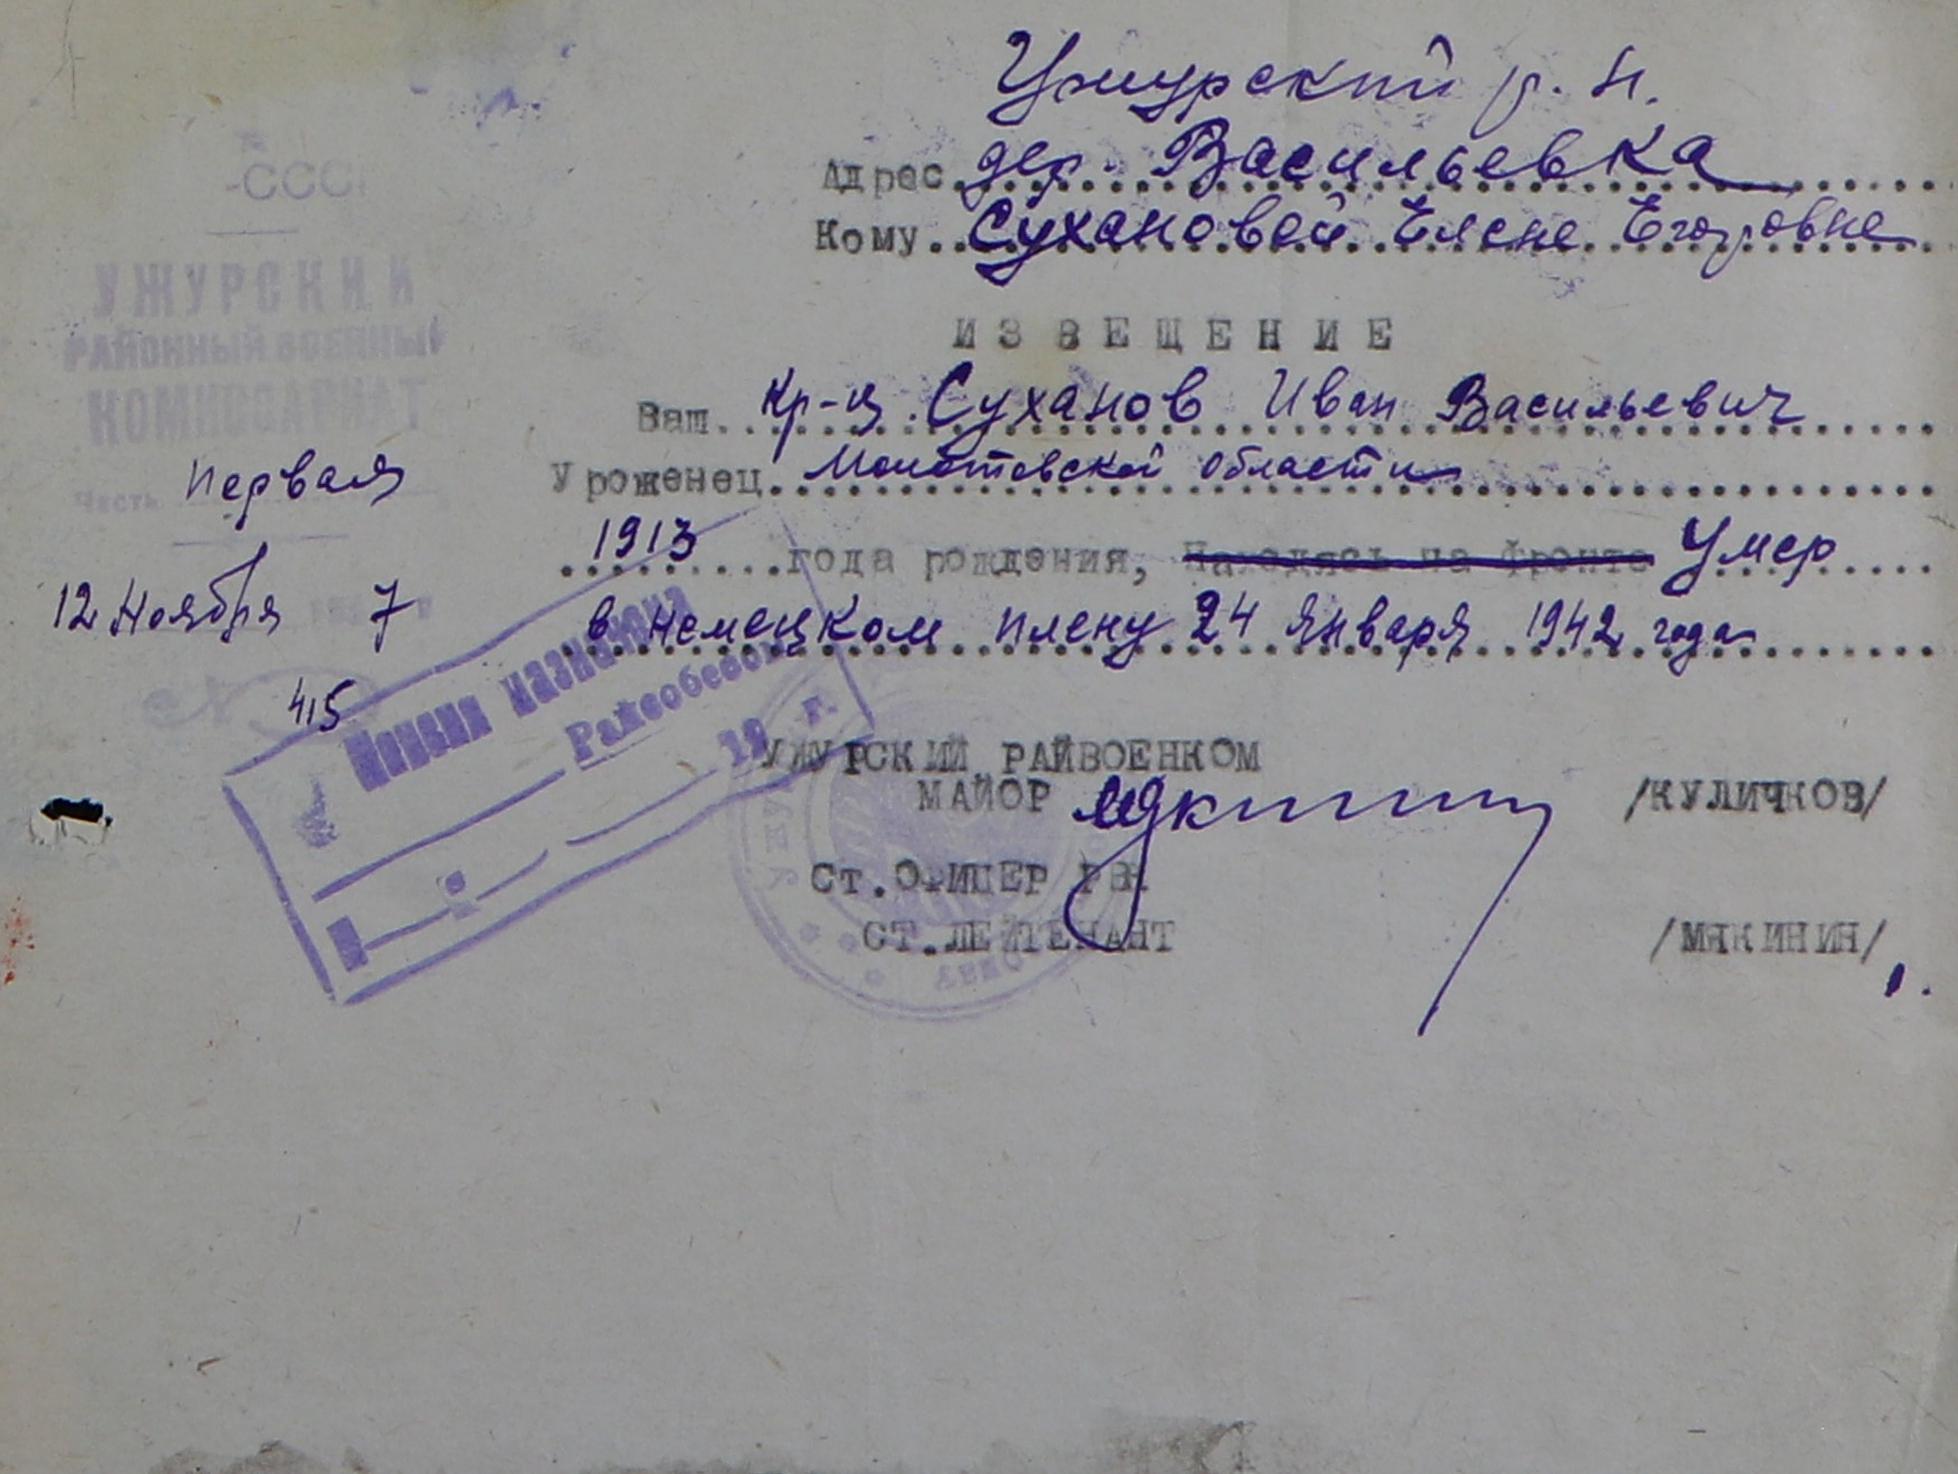 -СССР
УЖУРСКИЙ
РАЙОННЫЙ ВОЕННЫЙ
КОМИССАРИАТ
Часть первая
12 Ноября 7
415
Ужурский р. н.
Адрес дер. Васильевка
Кому Сухановой Елене Егоровне
ИЗВЕЩЕНИЕ
Ваш Кр-ц. Суханов Иван Васильевич
Уроженец Молотовской области
1913 года рождения, Находясь на фронте Умер
в немецком плену 24 Января 1942 года
Пенсия назначена
Райсобесом
19 г.
УЖУРСКИЙ РАЙВОЕНКОМ
МАЙОР /КУЛИЧКОВ/
Ст.ОФИЦЕР РВК
СТ.ЛЕЙТЕНАНТ /МЯКИНИН/